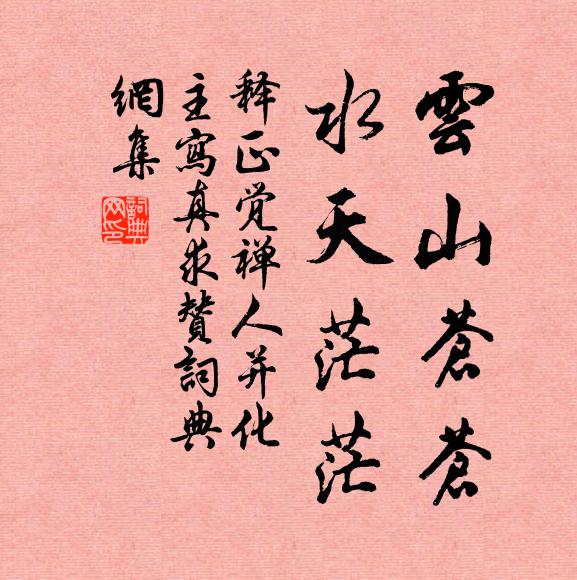 雲山蒼蒼
水天茫茫
释正觉禅人并化
主寫真求贊詞典
網集
詞典網印